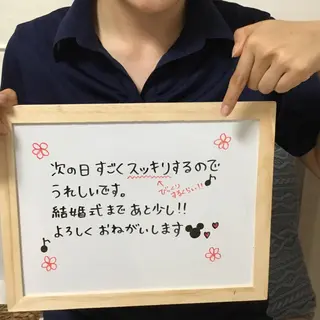 次の日 すごくスッキリするので
びっくりするくらい!!
うれしいです。
結婚式まで あと少し!!
よろしく おねがいします